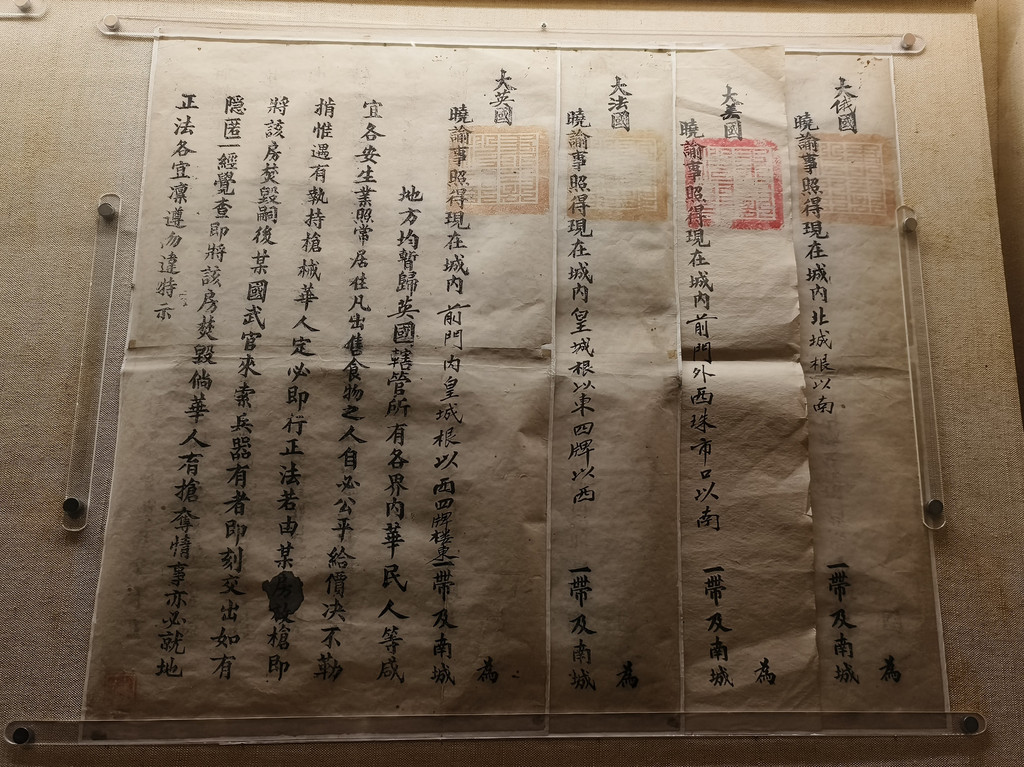 大俄國
為
曉諭事照得現在城內北城根以南
一帶及南城
大美國
為
曉諭事照得現在城內前門外西珠市口以南
一帶及南城
大法國
為
曉諭事照得現在城內皇城根以東四牌以西
一帶及南城
大英國
為
曉諭事照得現在城內前門內皇城根以西四牌樓東一帶及南城
地方均暫歸英國轄管所有各界內華民人等咸
宜各安生業照常居住凡出售食物之人自必公平給價決不勒
揹惟遇有執持槍械華人定必即行正法若由某房放槍即
將該房焚毀嗣後某國武官來索兵器有者即刻交出如有
隱匿一經覺查即將該房焚毀倘華人有搶奪情事亦必就地
正法各宜凜遵勿違特示